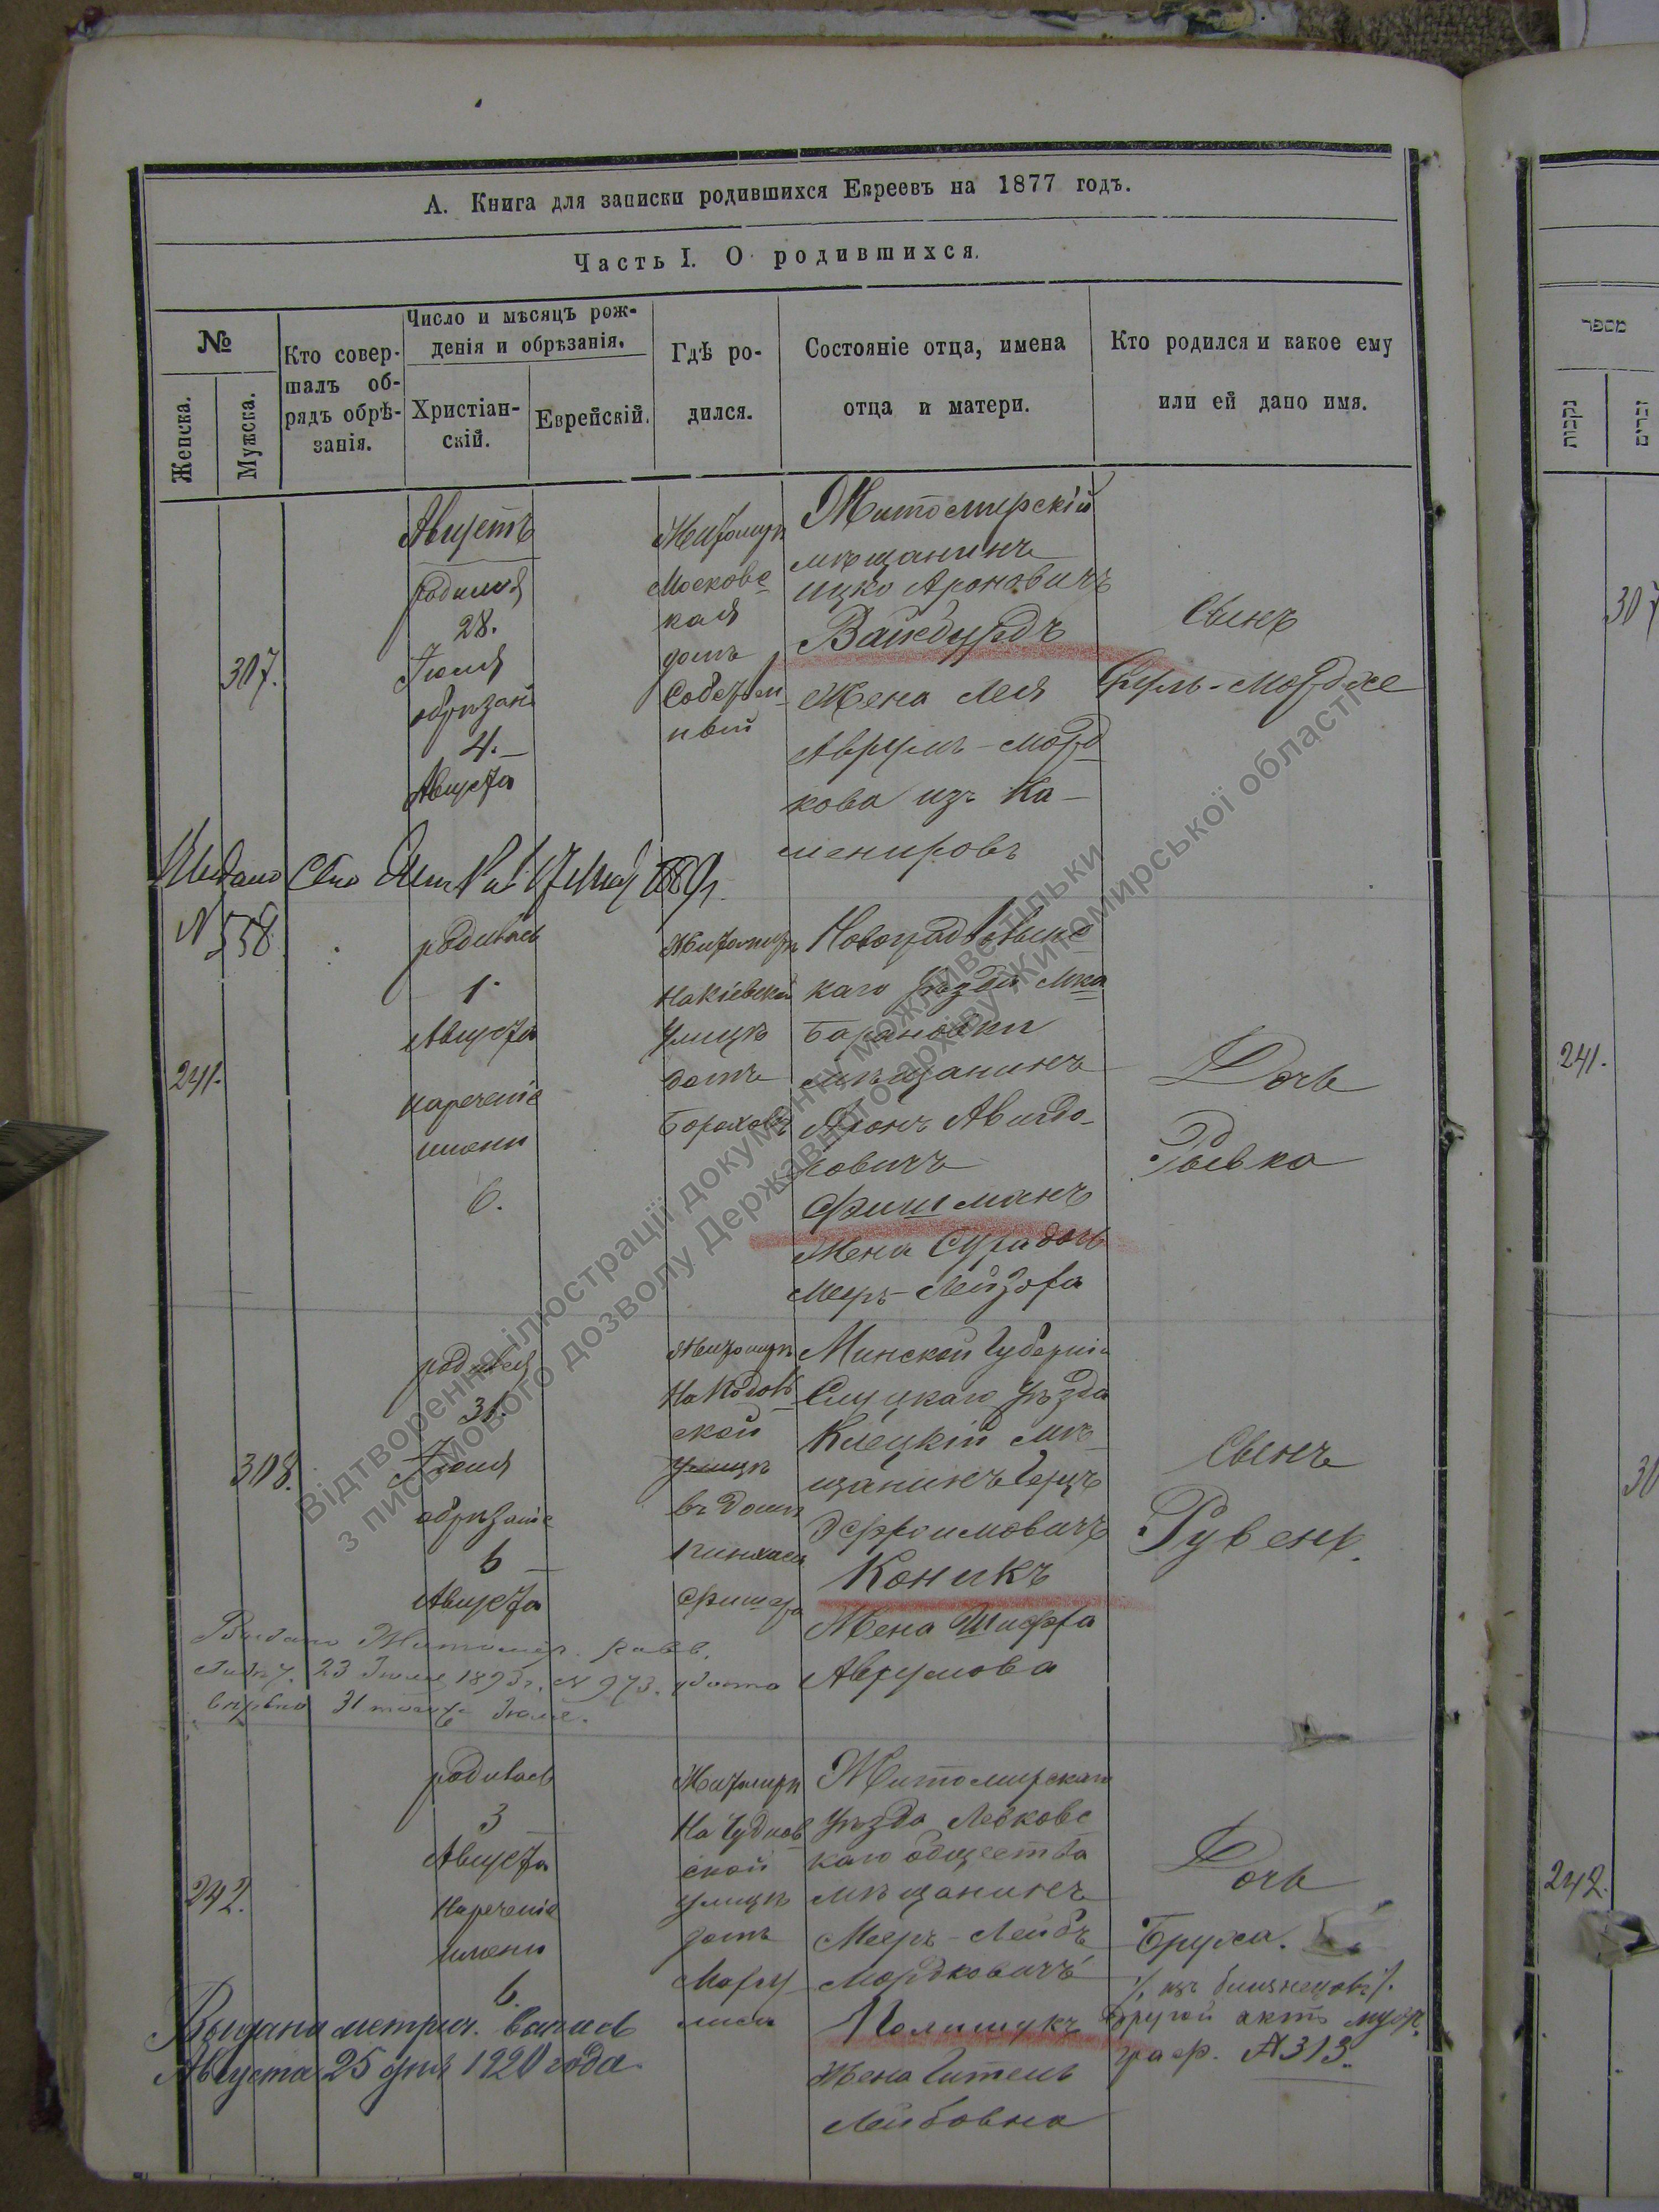 А. Книга для записки родившихся Евреевъ на 1877 годъ.
Часть I. О родившихся.
№
Женска.
Мужска.
Кто совер-
шалъ об-
рядъ обрѣ-
занія.
Число и мѣсяцъ рож-
денія и обрѣзанія.
Христіан-
скій.
Еврейскій.
Гдѣ ро-
дился.
Состояніе отца, имена
отца и матери.
Кто родился и какое ему
или ей дано имя.
307.
Августъ
родился
28.
Іюля
обрѣзан
4.
Августа
Житомирѣ
Московс
кая
домъ
Собствен
ный
Житомирскій
мѣщанинъ
Ицко Ароновичъ
Вайнбурдъ
Жена Лея
Аврумъ-Морд
кова изъ Ка-
менировъ
Сынъ
Сруль-Мордхе
N 558.
241.
родилась
1.
Августа
нареченіе
имени
6.
Житомирѣ
На Кіевской
Улицѣ
домъ
Новоградволынс
каго Уѣзда Мка
Барановки
мѣщанинъ
Аронъ Авигдо-
ровичъ
Фишманъ
Жена Сура дочь
Меер-Лейзора
Дочь
Рывка
308.
родился
31.
Іюля
обрѣзаніе
6
Августа
Житомирѣ
На Подол
ской
Улицѣ
въ домѣ
Пинхаса
Фишера
Минской Губерніи
Слуцкаго Уѣзда
Клецкій Мѣ-
щанинъ Герцъ
Эфроимовичъ
Коникъ
Жена Шифра
Аврумова
Сынъ
Рувенъ.
Выдано Житомир. Равв.
23 Іюля 1893 г. N 973.
31 того Іюля.
242.
родилась
3
Августа
Нареченіе
имени
6.
Житомирѣ
На Чуднов
ской
улицѣ
домъ
Житомирскаго
Уѣзда Левковс
каго общества
мѣщанинъ
Меер-Лейбъ
Мордковичъ
Полищукъ
Жена Гитель
Лейбовна
Дочь
Бруха.
изъ близнецовъ
другой актъ муж.
граф. № 313.
Выдана метрич. выпись
Августа 25 дня 1920 года.
מספר
נקבות
זכרים
307
241.
30
242.
Відтворення ілюстрації документу можливе тільки
з письмового дозволу Державного архіву Житомирської області